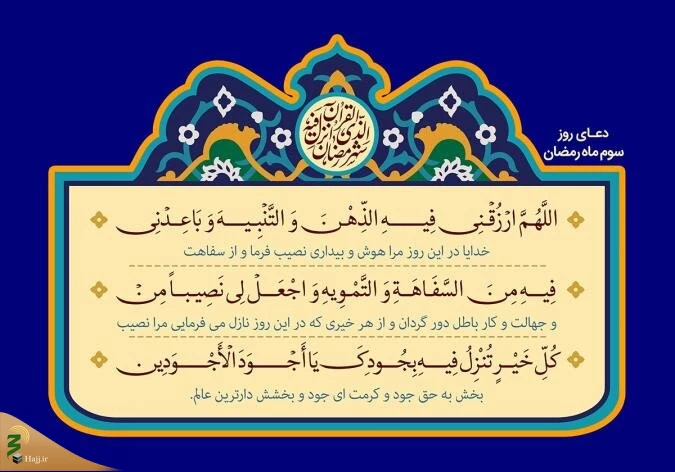 دعای روز
سوم ماه رمضان
شهر رمضان الذی انزل فیه القرآن
اللَّهُمَّ ارْزُقْنِی فِیهِ الذِّهْنَ وَ التَّنْبِیهَ وَ بَاعِدْنِی
خدایا در این روز مرا هوش و بیداری نصیب فرما و از سفاهت
فِیهِ مِنَ السَّفَاهَةِ وَ التَّمْوِیهِ وَ اجْعَلْ لِی نَصِیباً مِنْ
و جهالت و کار باطل دور گردان و از هر خیری که در این روز نازل می فرمایی مرا نصیب
کُلِّ خَیْرٍ تُنْزِلُ فِیهِ بِجُودِکَ یَا أَجْوَدَ الْأَجْوَدِینَ
بخش به حق جود و کرمت ای جود و بخشش دارترین عالم.
Hajj.ir